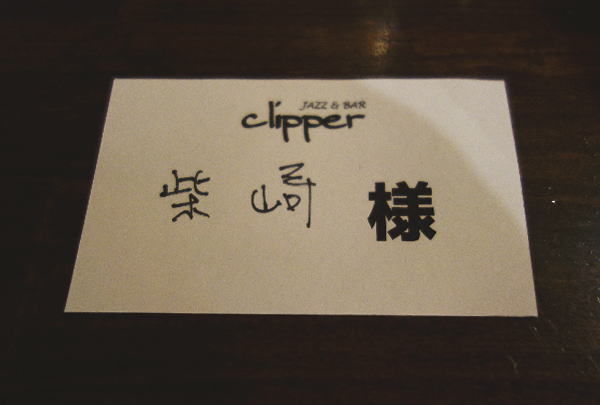 JAZZ & BAR
clipper
柴崎 様